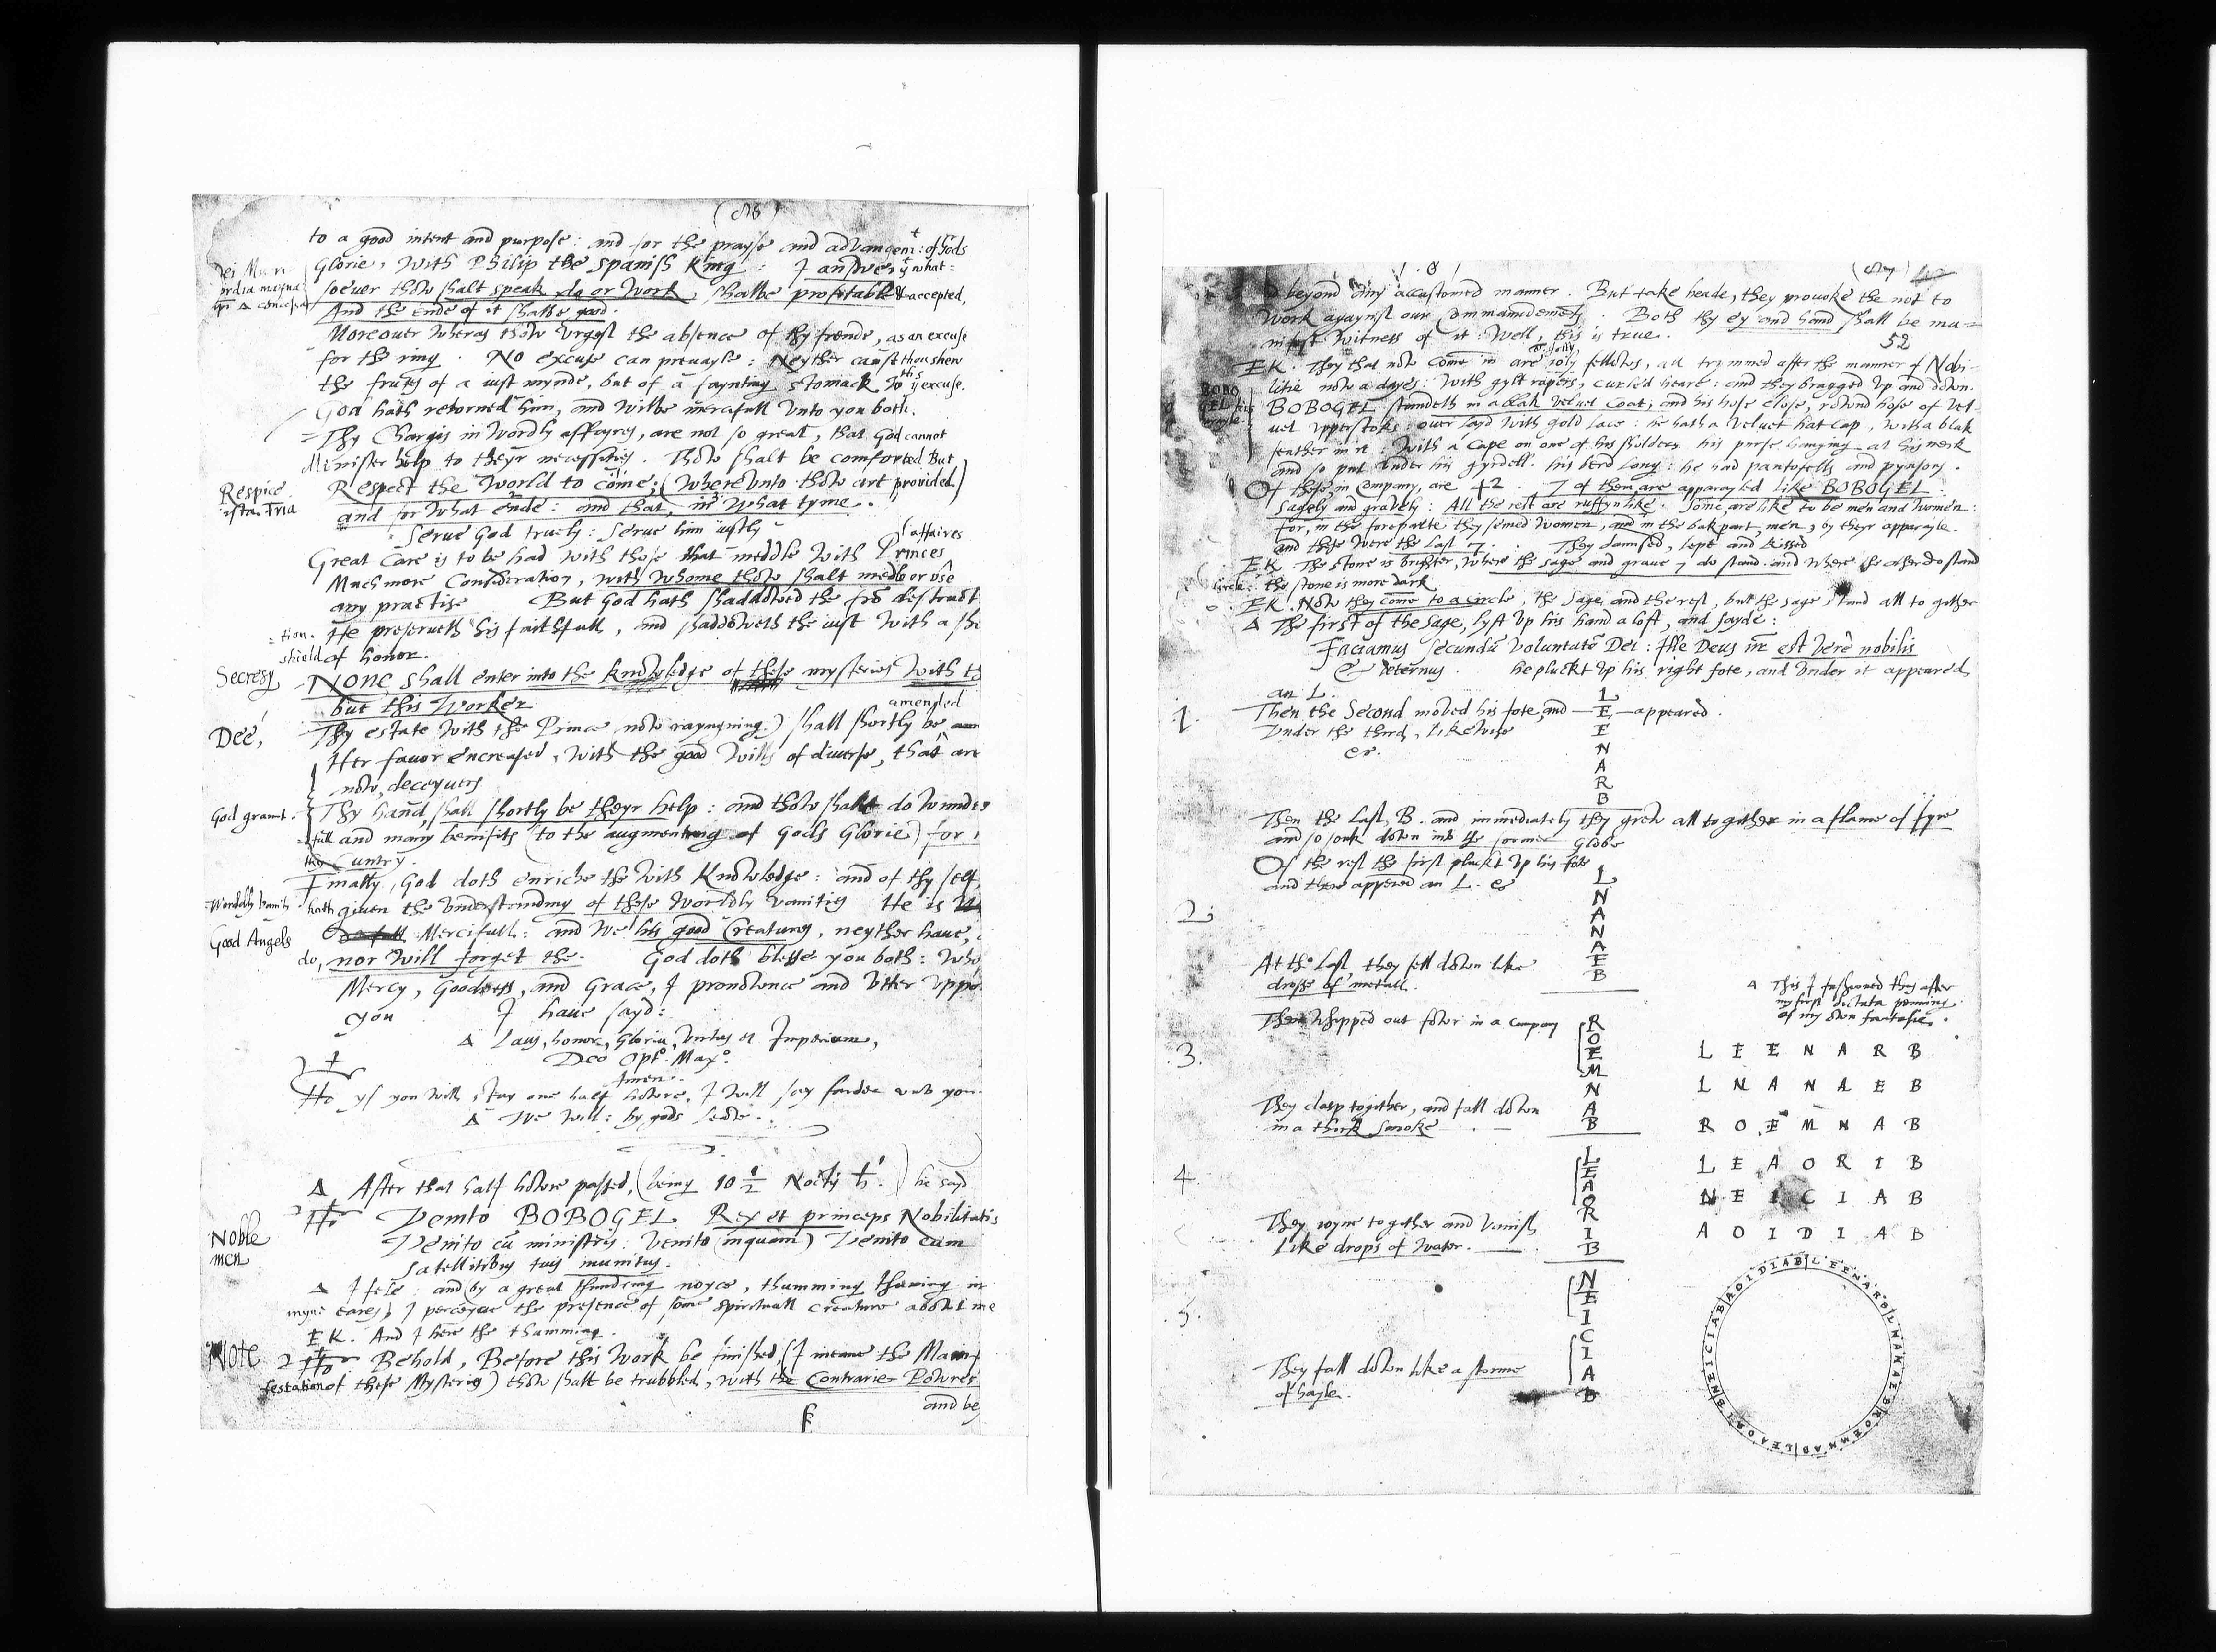 to a good intent and purpose: and for the prayse and advancemt: of Gods
Glorie, with Philip the Spanish King: I answer yt what=
soeuer thow shalt speak, do or work, shalbe profitable & accepted,
And the ende of it shalbe good.
Moreouer wheras thow vrgest the absence of thy frende, as an excuse
for the ring. No excuse can prevayle: Neyther canst thou shew
the frutes of a iust mynde, but of a faynting stomack wth this excuse.
God hath returned him, and wilbe mercifull vnto you both.
Thy Chargis in wordly affayres, are not so great, that God cannot
Minister help to theyr necessities. Thow shalt be comforted But
Respice
Respect the World to come: (Wherevnto thow art provided.)
and for what ende: and that, in what tyme.
Serve God truely: Serve him iustly
Great Care is to be had with those that meddle with Princes affaires
Much more Consideration, with whome thow shalt medle or vse
any practise But God hath shaddowed the fro destruct
=tion. He preserueth his faithfull, and shaddoweth the iust with a she
shield of honor.
Secresy
None shall enter into the knowledge of these mysteries with th
but this Worker
amended
Dee,
Thy estate with the Prince now raygning.) shall shortly be
Her favor encreased, with the good wills of diverse, that are
now, deceyuers
God graunt.
Thy hand, shall shortly be theyr help: and thow shalt do wonder
=full and many benifits (to the augmenting of Gods Glorie) for
thy Cuntry.
Finally, God doth enriche the with Knowledge: and of thy self,
Worldly vanity
hath given the vnderstanding of these worldly vanities He is
Good Angels
Mercifull: and we his good Creatures, neyther haue,
do, nor will forget the. God doth blesse you both: Who
Mercy, Goodness, and Grace, I pronownce and vtter vppo
you I haue sayd:
Δ Laus, honor, Gloria, virtus et Imperium,
Deo Opt. Max.
Amen.
yf you will stay one half howre, I will say farder vnto you.
Δ We will: by gods leave.
Δ After that half howre passed, (being 10 1/2 Noctis ♄.) he sayd
Noble
men
Venito BOBOGEL Rex et princeps Nobilitatis
Venito cū ministris: Venito (inquam) Venito cum
satellitibus tuis munitus.
Δ I fele: and (by a great thundring noyce, thumming thuming in
myne eares) I perceyue the presence of some spirituall creature abowt me
EK. And I here the thumming.
Note
Behold, Before this Work be finished, (I meane the Mani
festation of these Mysteries) thow shalt be trubbled, with the Contrarie Powres
and be
beyond any accustomed manner. But take heade, they provoke the not to
work agaynst our Commaundements. Both thy ey and hand shall be ma=
nifest witness of it: Well, this is true.
52
EK. They that now come in are ioly fellows, all trymmed after the manner of Nobi=
litie now a dayes: with gylt rapers, curled heare: and they bragged vp and down.
BOBO
GEL his
BOBOGEL standeth in a blak veluet Coat, and his hose close, rownd hose of vel=
vet vpperstoks: over layd with gold lace: he hath a veluet hat cap, with a blak
feather in it: with a cape on one of his sholders his purse hanging at his neck
and so put vnder his gyrdell. his berd long: he had pantofells and pynsons.
Of these, in Company, are 42. 7 of them are apparayled like BOBOGEL
sagely and gravely: All the rest are ruffyn like. Some are like to be men and women:
for, in the foreparte they semed women, and in the bak part, men, by theyr apparayle.
and these were the last 7. They daunsed, lept and kissed
EK. The stone is brighter, where the sage and graue 7 do stand. and where the other do stand
the stone is more dark.
Circle:
EK. Now they come to a circle, the sage and the rest, but the sage stand all to gither
Δ The first of the sage, lyft vp his hand a loft, and sayde:
Faciamus secundū voluntatē Dei: Ille Deus nr̄ est vere nobilis
& aeternus. he pluckt vp his right fote, and vnder it appeared
an L.
1. Then the Second moved his fote, and — E — appeared.
Vnder the third, likewise
L
E
E
N
A
R
B
Then the Last, B. and immediately they grew all togither in a flame of fyre
and so sonk down into the former Globe
Of the rest the first pluckt vp his fote
and there appered an L. &c
2.
L
N
A
N
A
E
B
At the last, they fell down like
drosse of metall.
Δ This I fashioned thus after
my first
of my own fantasie.
Then whipped out fowr in a cumpany
3.
R
O
E
M
N
A
B
L E E N A R B
L N A N A E B
They clasp together, and fall down
in a thick smoke
R O E M N A B
L E A O R I B
N E I C I A B
A O I D I A B
4.
L
E
A
O
R
I
B
They ioyne to gether and vanish
like drops of water.
5.
N
E
I
C
I
A
B
They fall down like a storme
of hayle.
LEENARB|LNANAEB|ROEMNAB|LEAORIB|NEICIAB|AOIDIAB